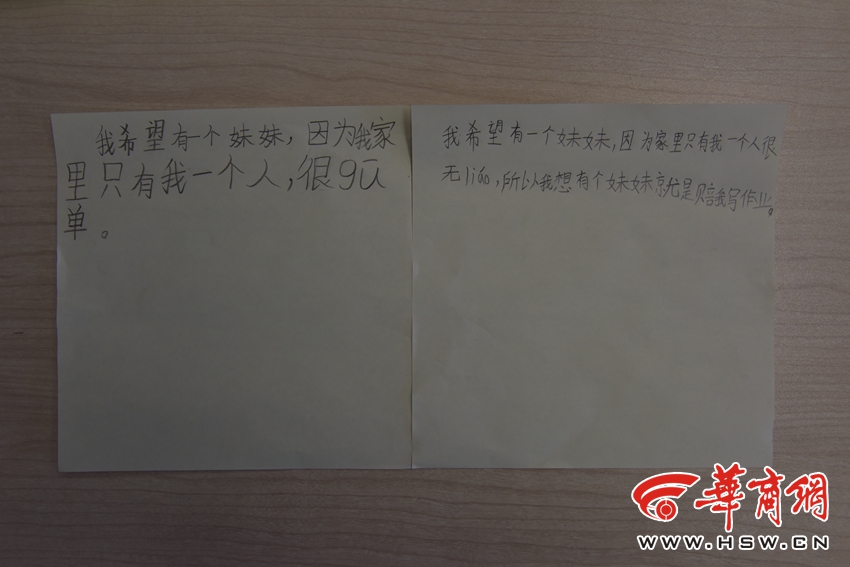 我希望有一个妹妹，因为我家
里只有我一个人，很gū
单。
我希望有一个妹妹，因为家里只有我一个人很
无liáo，所以我想有个妹妹就是赔我写作业。
华商网
WWW.HSW.CN